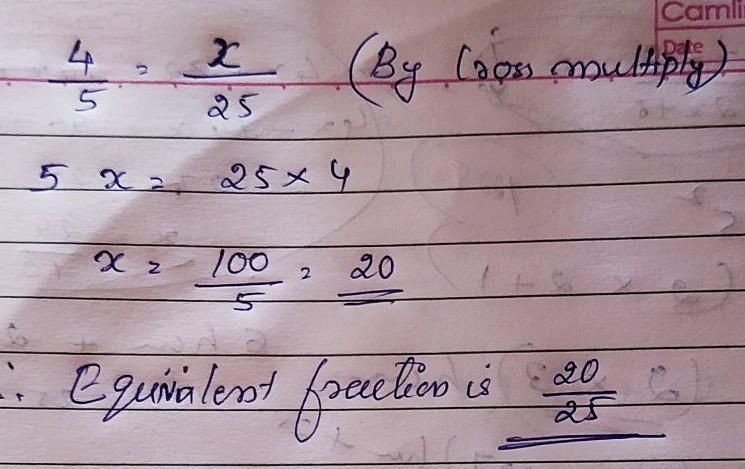 Camli
Date
4/5 = x/25 (By Cross multiply)
5 x = 25 × 4
x = 100/5 = 20
∴ Equivalent fraction is 20/25